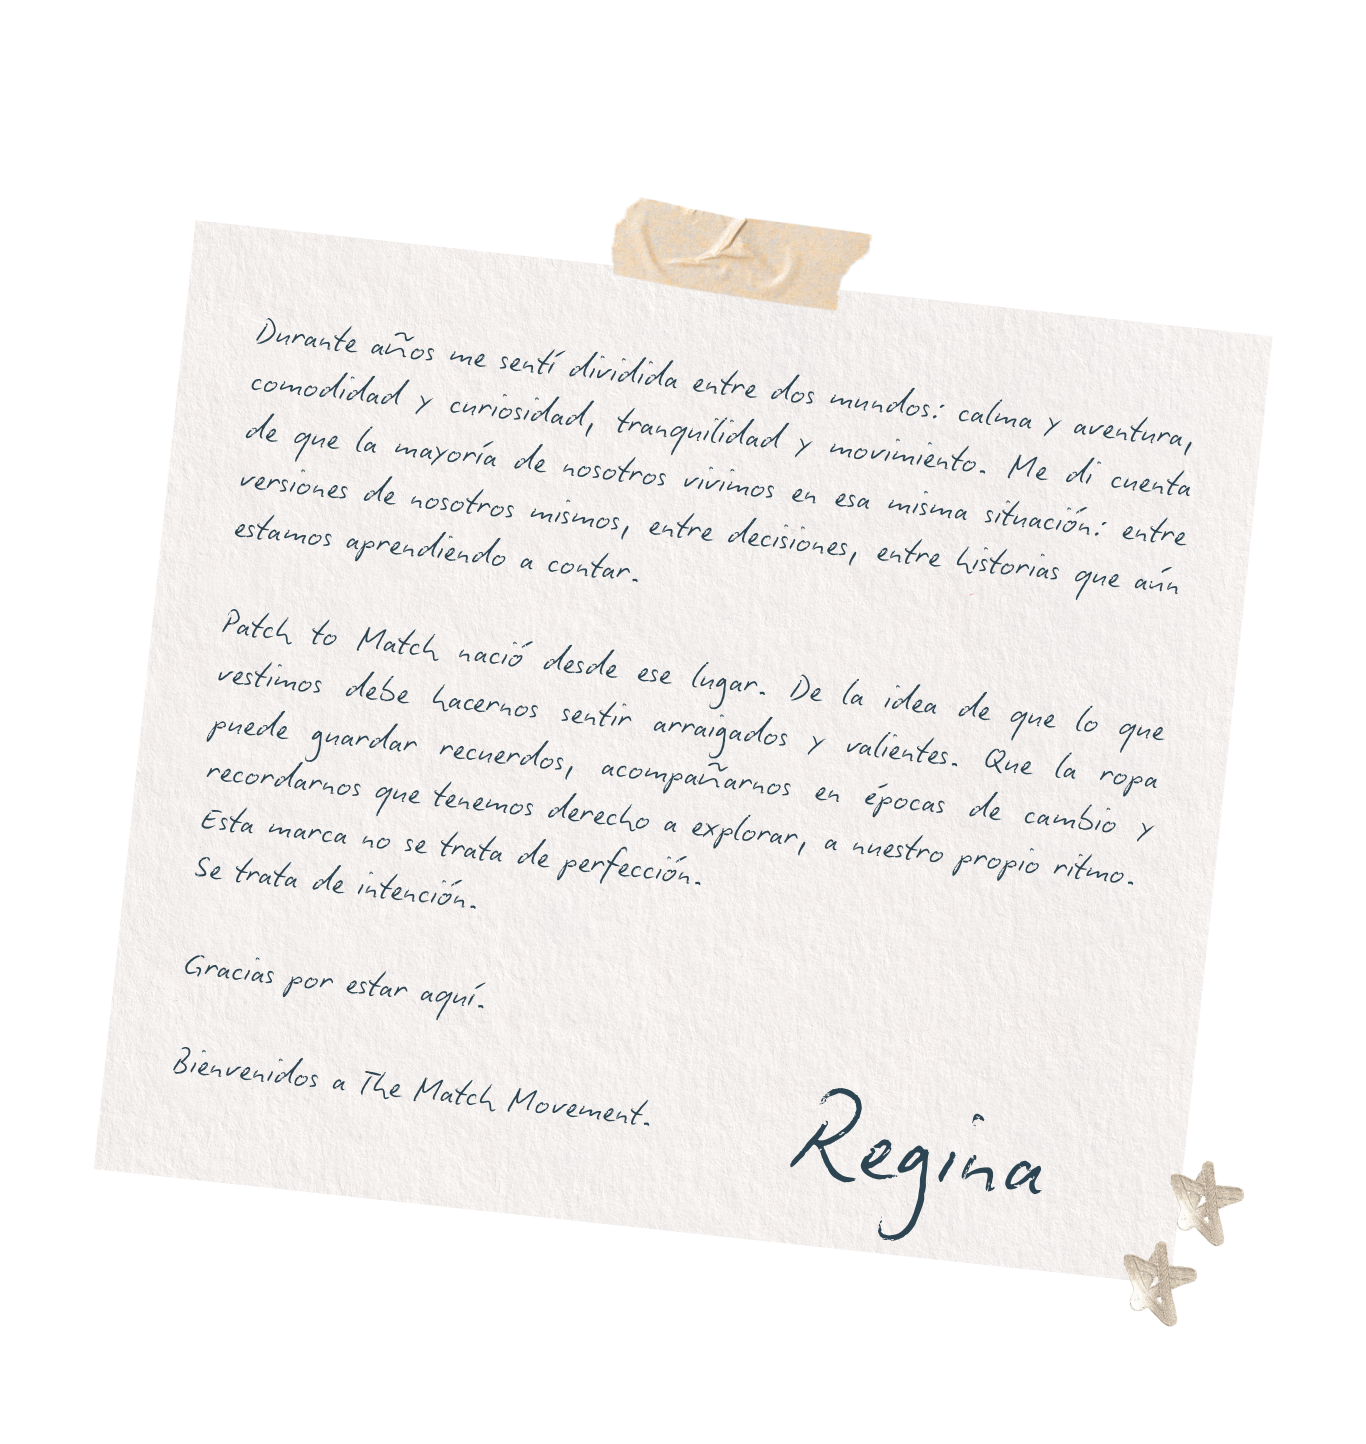 Durante años me sentí dividida entre dos mundos: calma y aventura,
comodidad y curiosidad, tranquilidad y movimiento. Me di cuenta
de que la mayoría de nosotros vivimos en esa misma situación: entre
versiones de nosotros mismos, entre decisiones, entre historias que aún
estamos aprendiendo a contar.
Patch to Match nació desde ese lugar. De la idea de que lo que
vestimos debe hacernos sentir arraigados y valientes. Que la ropa
puede guardar recuerdos, acompañarnos en épocas de cambio y
recordarnos que tenemos derecho a explorar, a nuestro propio ritmo.
Esta marca no se trata de perfección.
Se trata de intención.
Gracias por estar aquí.
Bienvenidos a The Match Movement.
Regina